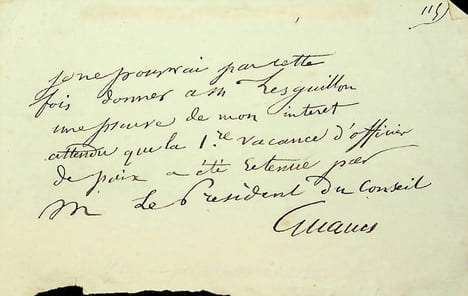 115
je ne pourrai par cette
fois donner a Mr Lesguillon
une preuve de mon interet
attendu que la 1.re vacance d'officier
de paix a été retenue par
M Le President du Conseil